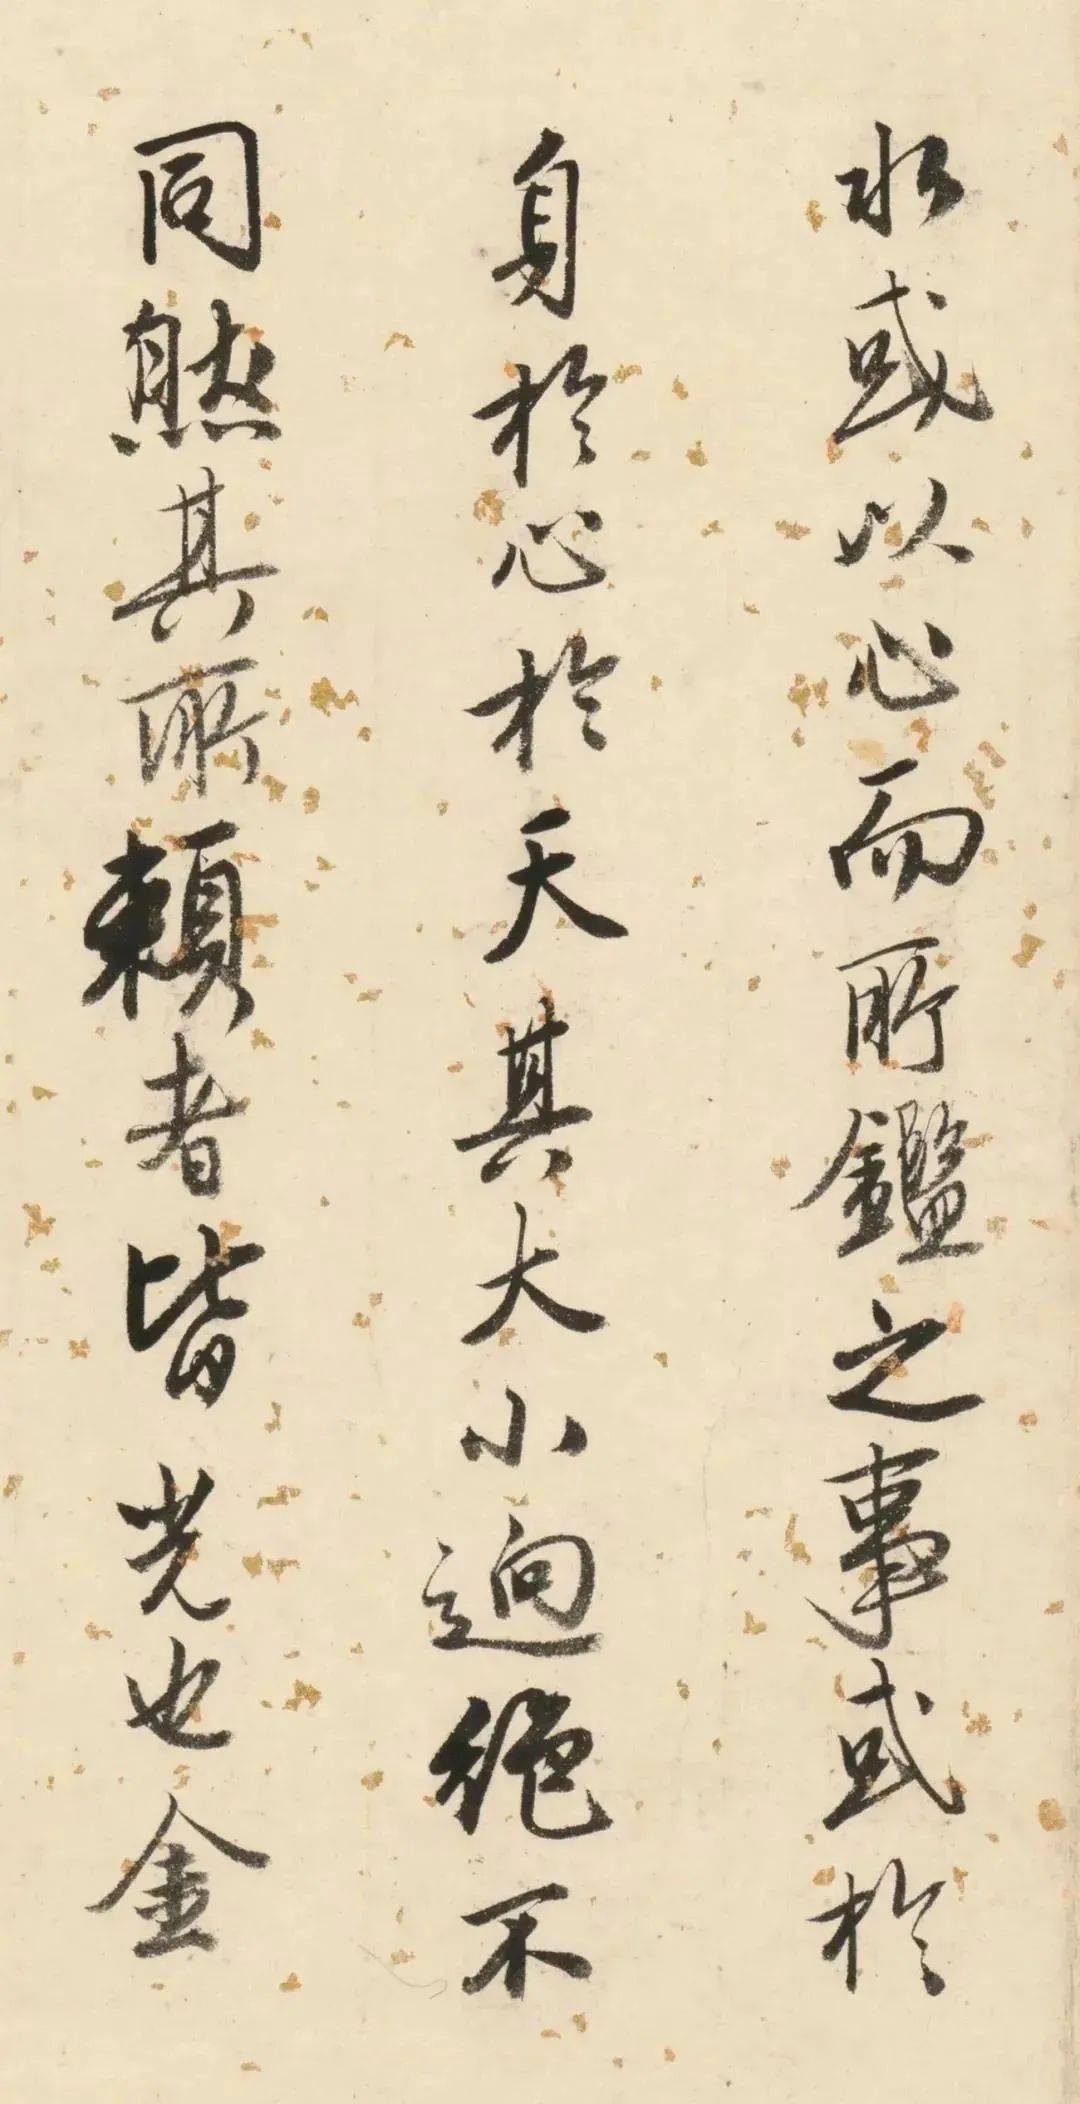 水或以心而所鑑之事或於
身於心於天其大小迥絕不
同然其所賴者皆光也金